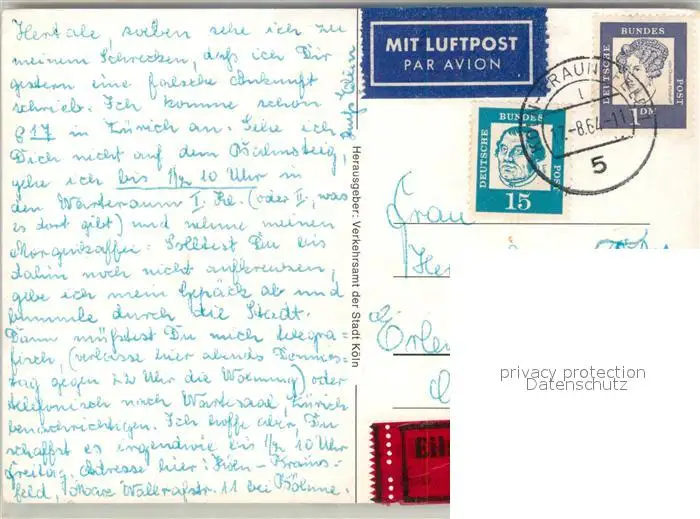 Hertale, soeben sehe ich zu
meinem Schrecken, daß ich Dir
gestern eine falsche Ankunft
schrieb. Ich komme schon
8 17 in Zürich an. Sehe ich
Dich nicht auf dem Bahnsteig,
gehe ich bis 1/2 10 Uhr in
den Warteraum I. Kl. (oder II., was
es dort gibt) und nehme meinen
Morgenkaffee. Solltest Du bis
dahin noch nicht aufkreuzen,
gebe ich mein Gepäck ab und
bummle durch die Stadt.
Dann müßtest Du mich telegra-
fisch, (verlasse hier abends Donners-
tag gegen 22 Uhr die Wohnung) oder
telefonisch nach Wartesaal, Zürich
benachrichtigen. Ich hoffe aber Du
schaffst es irgendwie bis 1/2 10 Uhr
Freitag. Adresse hier: Köln-Brauns-
feld, Max Wallrafstr. 11 bei Böhme.
MIT LUFTPOST
PAR AVION
DEUTSCHE BUNDES POST
1 DM
DEUTSCHE BUNDES POST
15
-8.64-11
5
Herausgeber: Verkehrsamt der Stadt Köln
Frau
Erle
privacy protection
Datenschutz
Eil